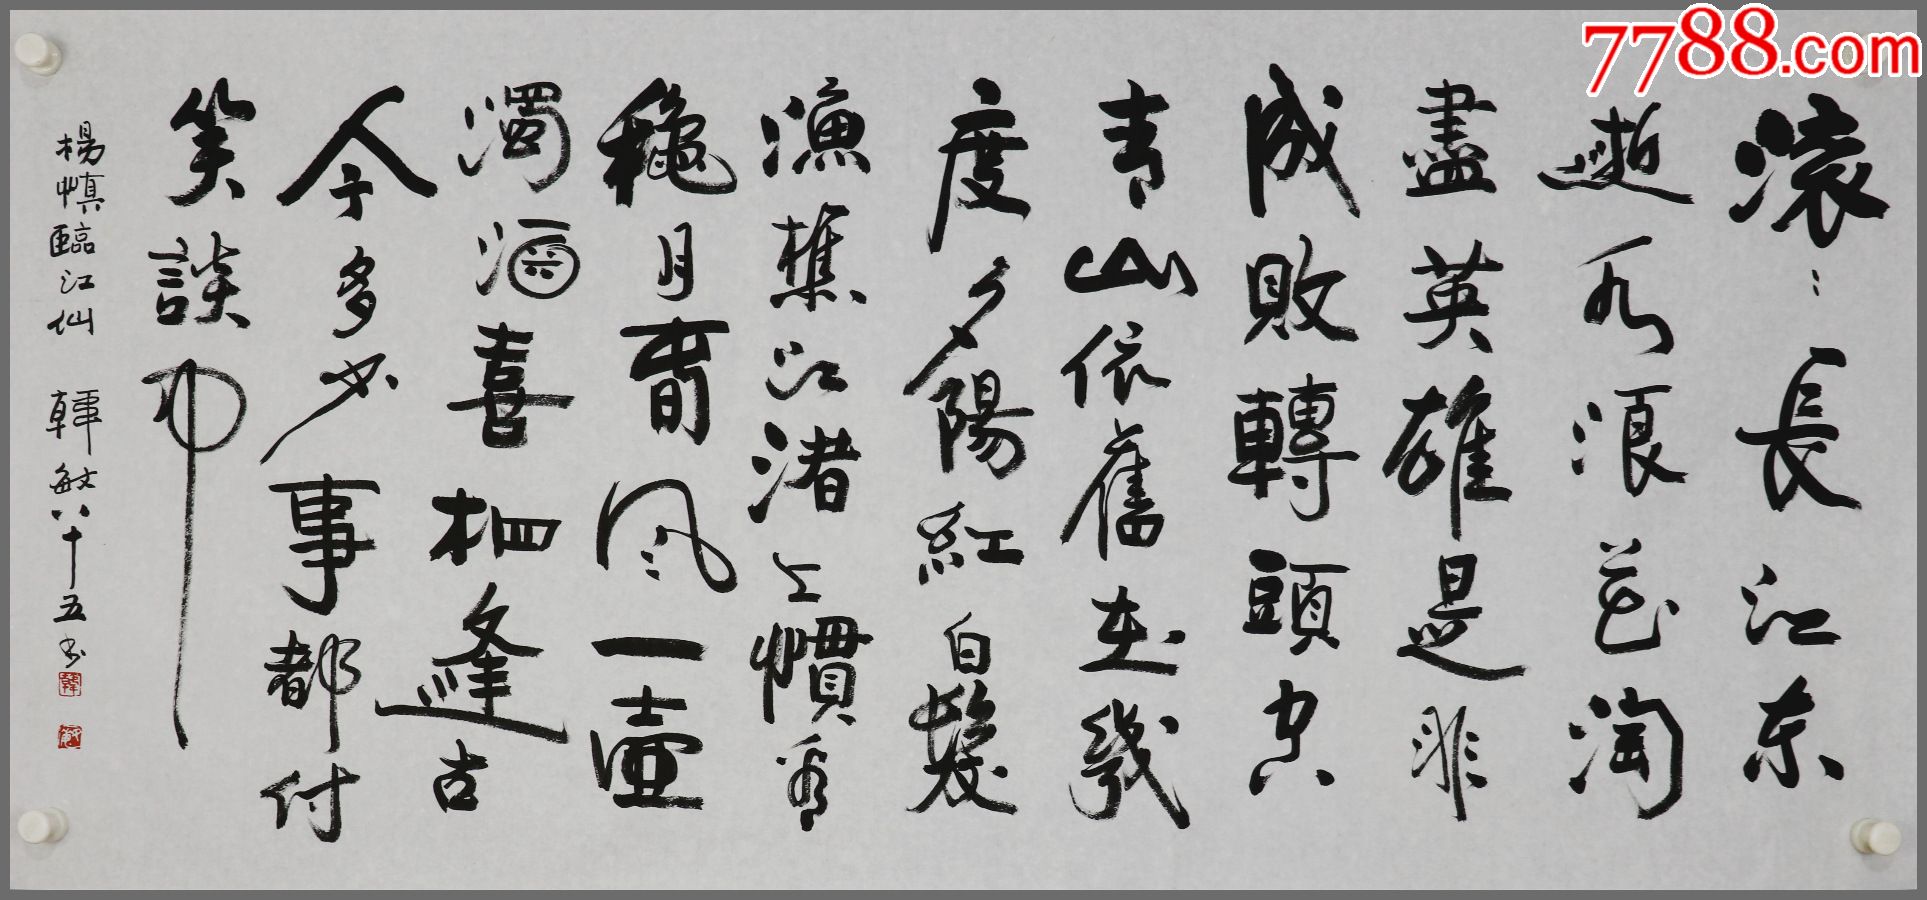 7788.com
滚〻長江东
逝水浪花淘
盡英雄是非
成敗轉頭空
青山依舊在幾
度夕陽紅白髮
漁樵江渚上慣看
穐月春风一壺
濁酒喜相逢古
今多少事都付
笑談中
楊慎臨江仙 韓敏八十五书